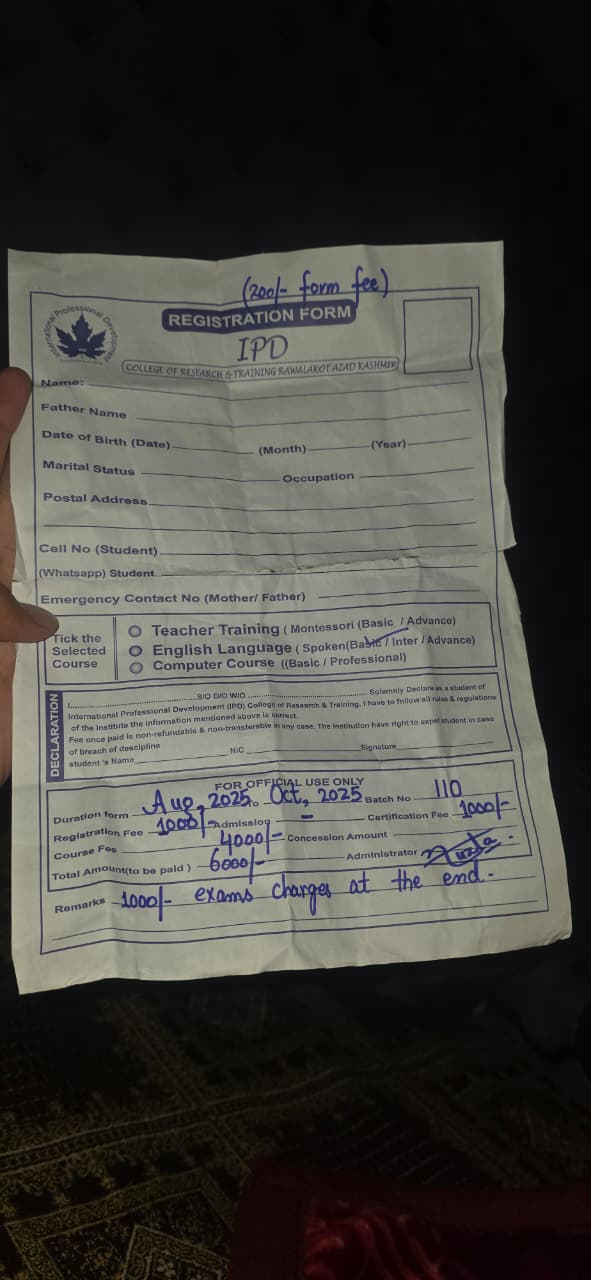 (200/- form fee)
International Professional Development
REGISTRATION FORM
IPD
COLLEGE OF RESEARCH & TRAINING RAWALAKOT AZAD KASHMIR
Name:
Father Name
Date of Birth (Date) (Month) (Year)
Marital Status Occupation
Postal Address
Cell No (Student)
(Whatsapp) Student
Emergency Contact No (Mother/ Father)
Tick the Selected Course
Teacher Training ( Montessori (Basic / Advance)
English Language ( Spoken(Basic / Inter / Advance)
Computer Course ((Basic / Professional)
DECLARATION
I, S/O D/O W/O Solemnly Declare as a student of
International Professional Development (IPD) College of Research & Training. I have to follow all rules & regulations
of the Institute the information mentioned above is correct.
Fee once paid is non-refundable & non-transferable in any case. The institution have right to expel student in case
of breach of descipline
student 's Name NIC Signature
FOR OFFICIAL USE ONLY
Duration form Aug, 2025 to Oct, 2025 Batch No 110
Registration Fee 1000/- Admission - Certification Fee 1000/-
Course Fee 4000/- Concession Amount
Total Amount(to be paid ) 6000/- Administrator
Remarks 1000/- exams charges at the end.